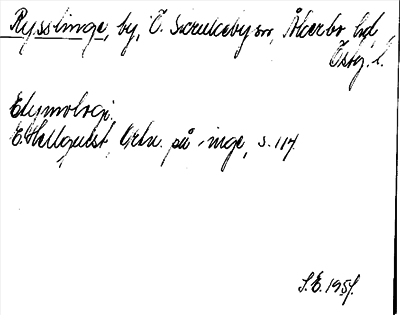 Rysslinge, by, Ö. Skrukeby sn, Åkerbo hd,
Östg. l.
Etymologi:
E. Hellquist, Ortn. på -inge, s. 117
S.E. 1951.